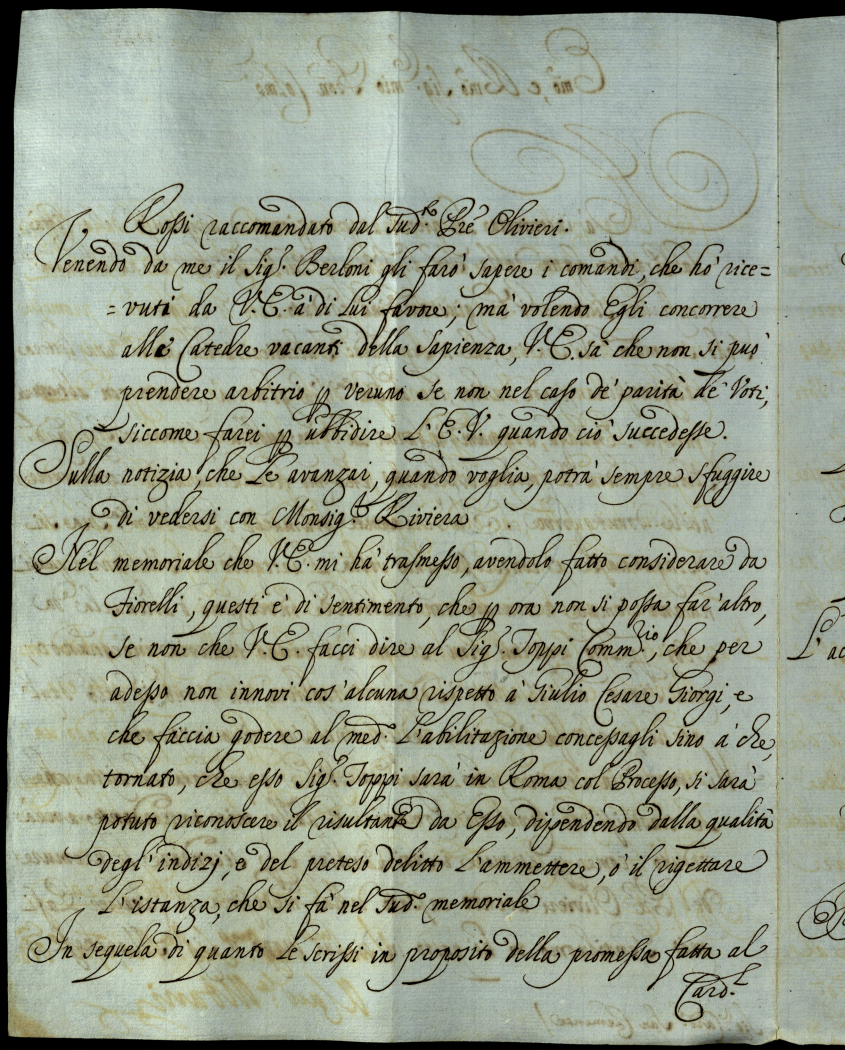 Rossi raccomandato dal Sud.to Pre Olivieri.
Venendo da me il Sig.r Berloni gli farò sapere i comandi, che hò rice=
=vuti da V.E. à di Lui favore; mà volendo Egli concorrere
alle Catedre vacanti della Sapienza, V.E. sà che non si può
prendere arbitrio p veruno se non nel caso de' parità de' Voti,
siccome farei p ubbidire L'E.V. quando ciò succedesse.
Sulla notizia, che Le avanzai, quando voglia, potrà sempre sfuggire
di vedersi con Monsig.r Riviera
Nel memoriale che V.E. mi hà trasmesso, avendolo fatto considerare da
Fiorelli, questi è di sentimento, che p ora non si possa far'altro,
se non che V.E. facci dire al Sig.r Toppi Comm.rio, che per
adesso non innovi cos'alcuna rispetto à Giulio Cesare Giorgi, e
che faccia godere al med.o L'abilitazione concessagli sino à che,
tornato, che esso Sig.r Toppi sarà in Roma col Processo, si sarà
potuto riconoscere il risultante da Esso, dipendendo dalla qualità
degl'indizj, e del preteso delitto L'ammettere, ò il rigettare
L'istanza, che si fà nel Sud.o memoriale
In sequela di quanto Le scrissi in proposito della promessa fatta al
Card.l
L'